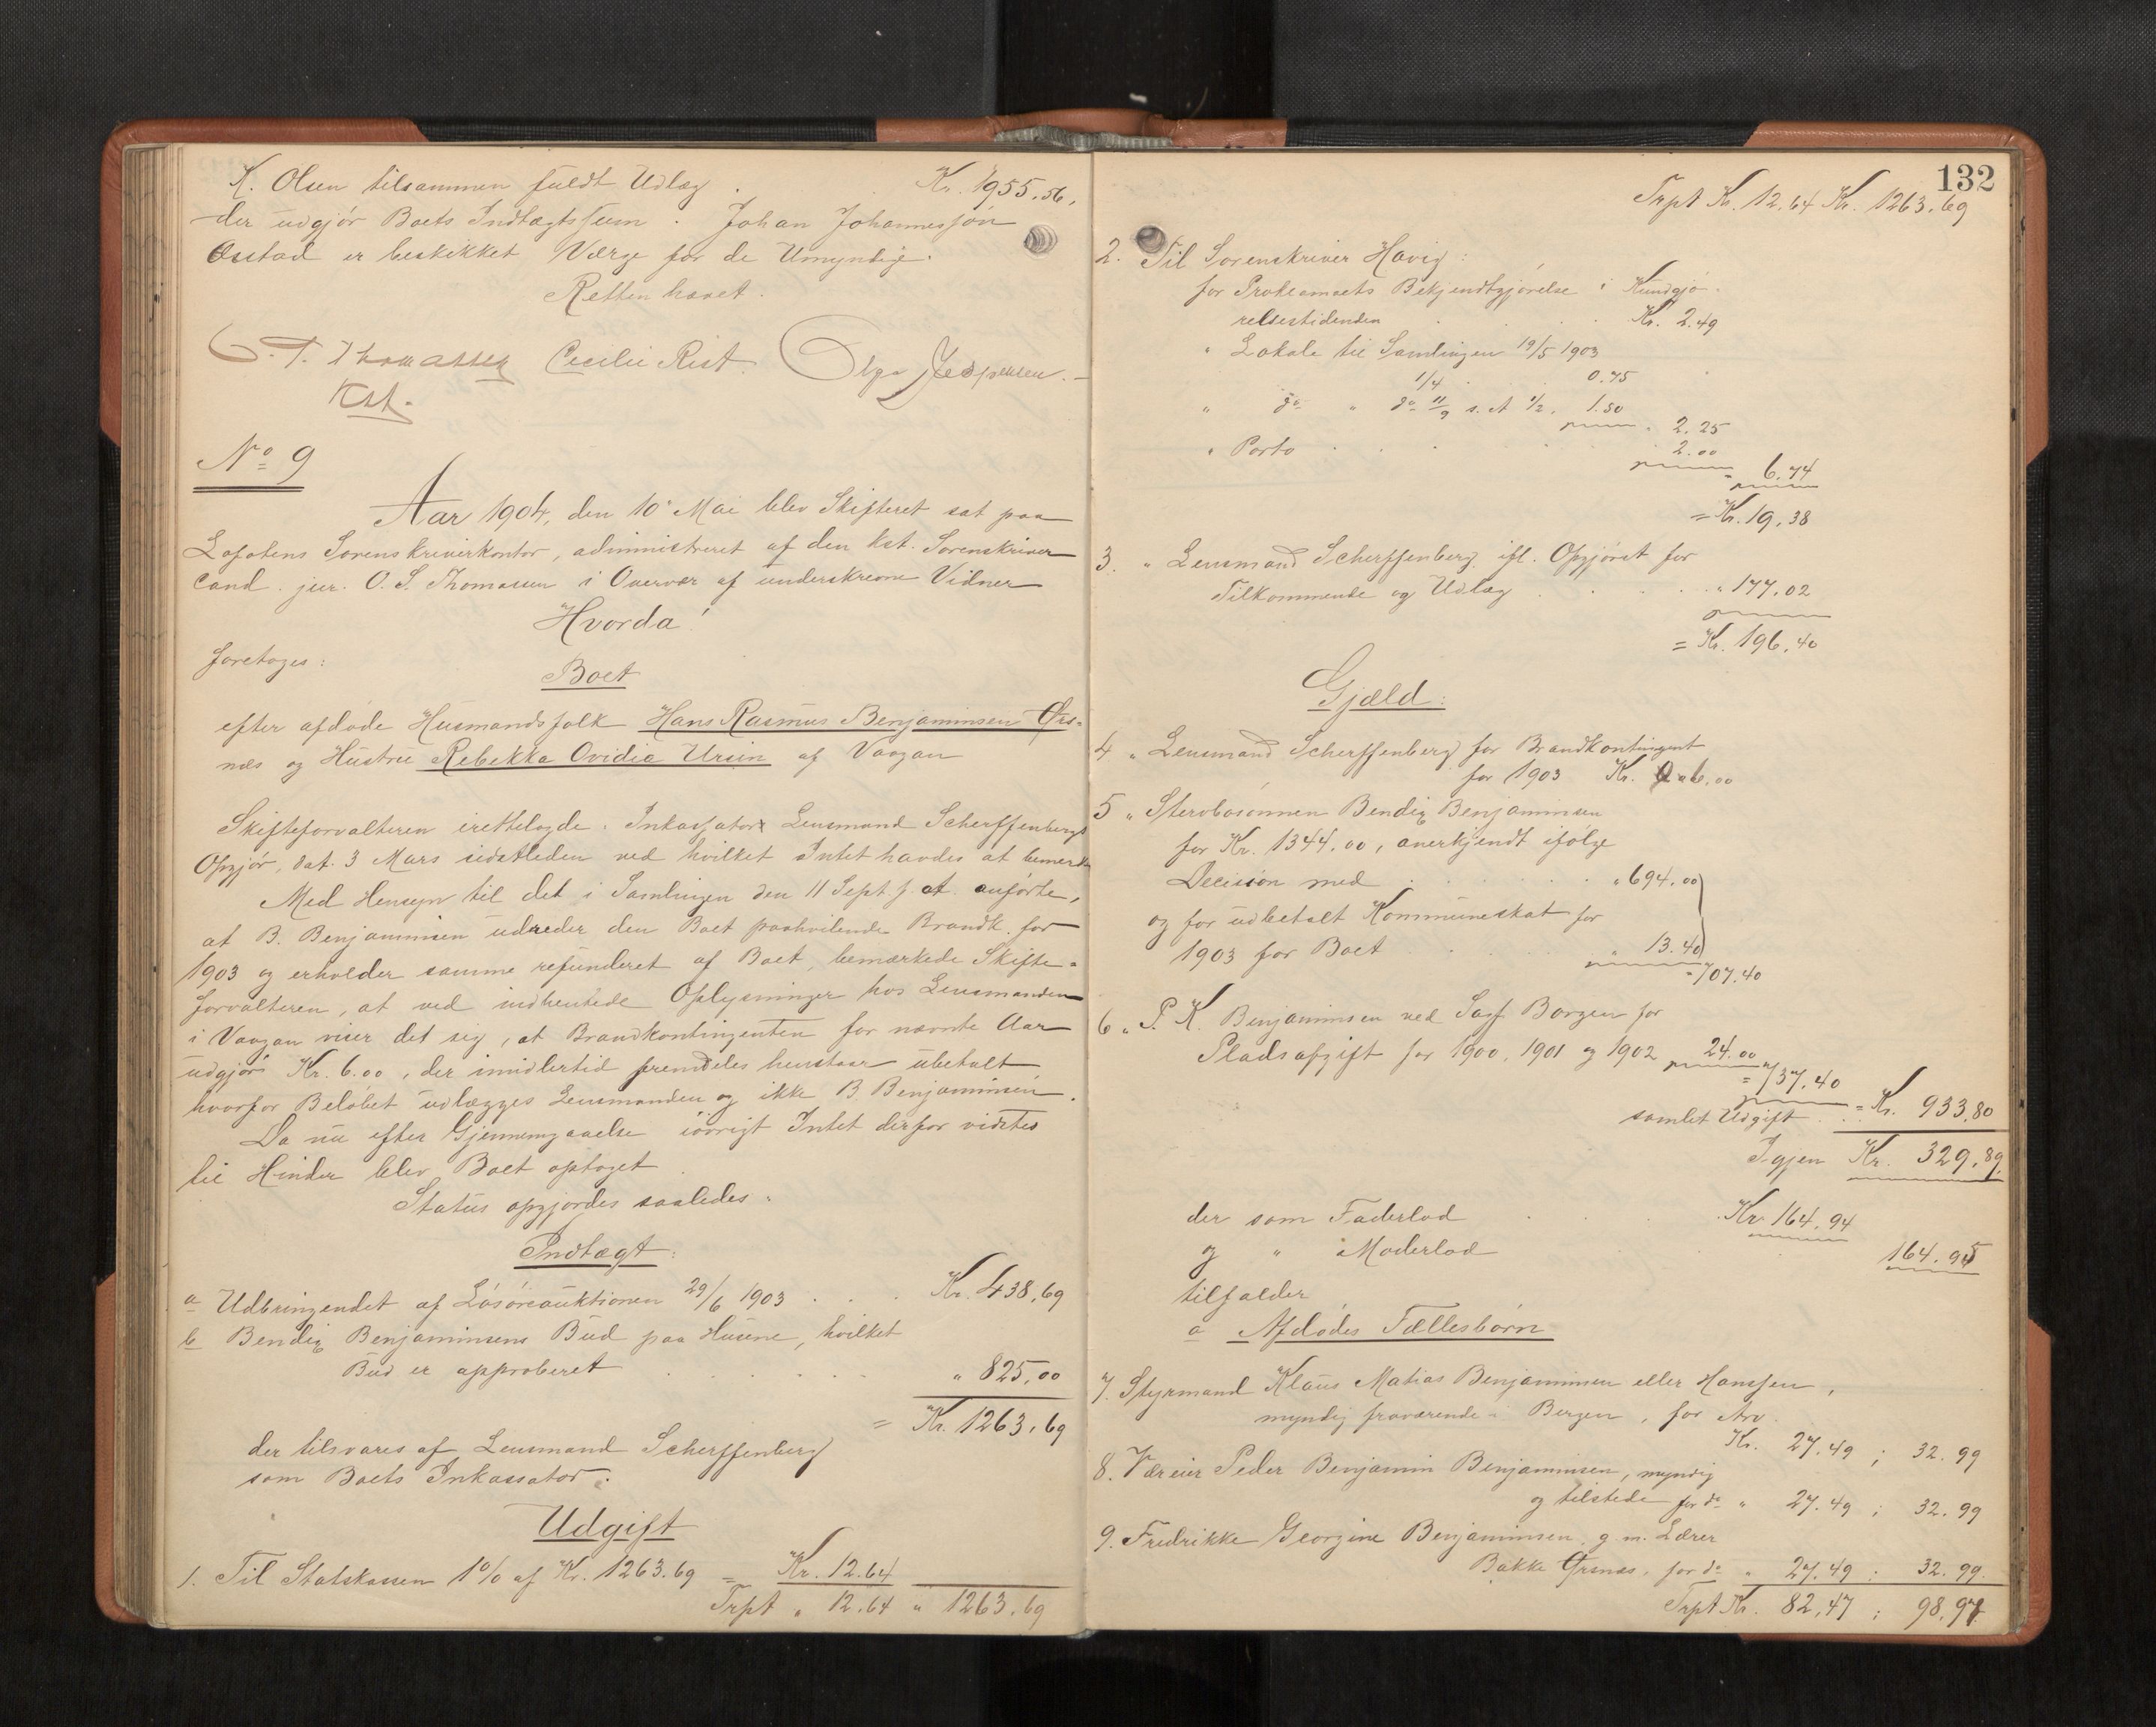 K. Olsen tilsammen fuldt Udlæg . Kr. 1955.56.
der udgjør Boets Indtægtssum . Johan Johannessøn
Østad er beskikket Værge for de Umyndige.
Retten hævet.
O. S. Thomassen Cecilie Rist. Olga Jespersen.
Kst.
No 9
Aar 1904, den 10 Mai blev Skifteret sat paa
Lofotens Sorenskriverkontor, administreret af den kst. Sorenskriver
cand. jur. O. S. Thomassen i Overvær af underskrevne Vidner
Hvorda!
foretoges:
Boet
efter afdøde Husmandsfolk Hans Rasmus Benjaminsen Ørs-
næs og Hustru Rebekka Ovidia Ursin af Vaagan
Skifteforvalteren irettelagde. Inkassator Lensmand Scherffenbergs
Opgjør, dat. 3 Mars sidstleden ved hvilket Intet havdes at bemerke
Med Hensyn til det i Samlingen den 11 Sept. f. A. anførte,
at B. Benjaminsen udreder den Boet paahvilende Brandk. for
1903 og erholder samme refunderet af Boet, bemærkede Skifte-
forvalteren, at ved indhentede Oplysninger hos Lensmanden
i Vaagan viser det sig, at Brandkontingenten for nævnte Aar
udgjør Kr. 6.00, der imidlertid fremdeles henstaar ubetalt
hvorfor Beløbet udlægges Lensmanden og ikke B. Benjaminsen.
Da nu efter Gjennemgaaelse iøvrigt Intet derfor vidstes
til Hinder blev Boet optaget
Status opgjordes saaledes:
Indtægt:
a Udbringendet af Løsøreauktionen 29/6 1903 . . . Kr. 438.69
b Bendix Benjaminsens Bud paa Husene, hvilket
Bud er approberet . . . . . " 825.00
= Kr. 1263.69
der tilsvares af Lensmand Scherffenberg
som Boets Inkassator.
Udgift
1. Til Statskassen 1% af Kr. 1263.69 = Kr. 12.64
Trpt " 12.64 " 1263.69
132
Trpt Kr. 12.64 Kr. 1263.69
2. Til Sorenskriver Havig:
for Proklamaets Bekjendtgjørelse i Kundgjø-
relsestidenden . . . Kr. 2.49
" Lokale til Samlingen 19/5 1903
1/4 . . 0.75
" do " do 11/9 s. A 1/2. 1.50
" 2.25
" Porto . . . . 2.00
" 6.74
= Kr. 19.38
3. " Lensmand Scherffenberg ifl. Opgjøret for
Tilkommende og Udlæg . . . . " 177.02
= Kr. 196.40
Gjæld:
4 " Lensmand Scherffenberg for Brandkontingent
for 1903 Kr. 6.00
5 " Stervbosønnen Bendix Benjaminsen
for Kr. 1344.00, anerkjendt ifølge
Decision med . . . . . " 694.00
og for udbetalt Kommuneskat for
1903 for Boet . . . . " 13.40
" 707.40
6 " P. K. Benjaminsen ved Sagf. Borgen for
Pladsafgift for 1900, 1901 og 1902 24.00
= 737.40
samlet Udgift . . = Kr. 933.80
Igjen Kr. 329.89.
der som Faderlod . . . . Kr 164.94
og " Moderlod . 164.95
tilfalder
a Afdødes Fællesbørn
7. Styrmand Klaus Matias Benjaminsen eller Hanssen,
myndig fraværende i Bergen, for Arv.
Kr. 27.49 ; 32.99
8. Væreier Peder Benjamin Benjaminsen, myndig
og tilstede for do " 27.49 ; 32.99
9. Fredrikke Georgine Benjaminsen g. m. Lærer
Bakke Ørsnæs, for do " 27.49 ; 32.99
Trpt Kr. 82.47 ; 98.97